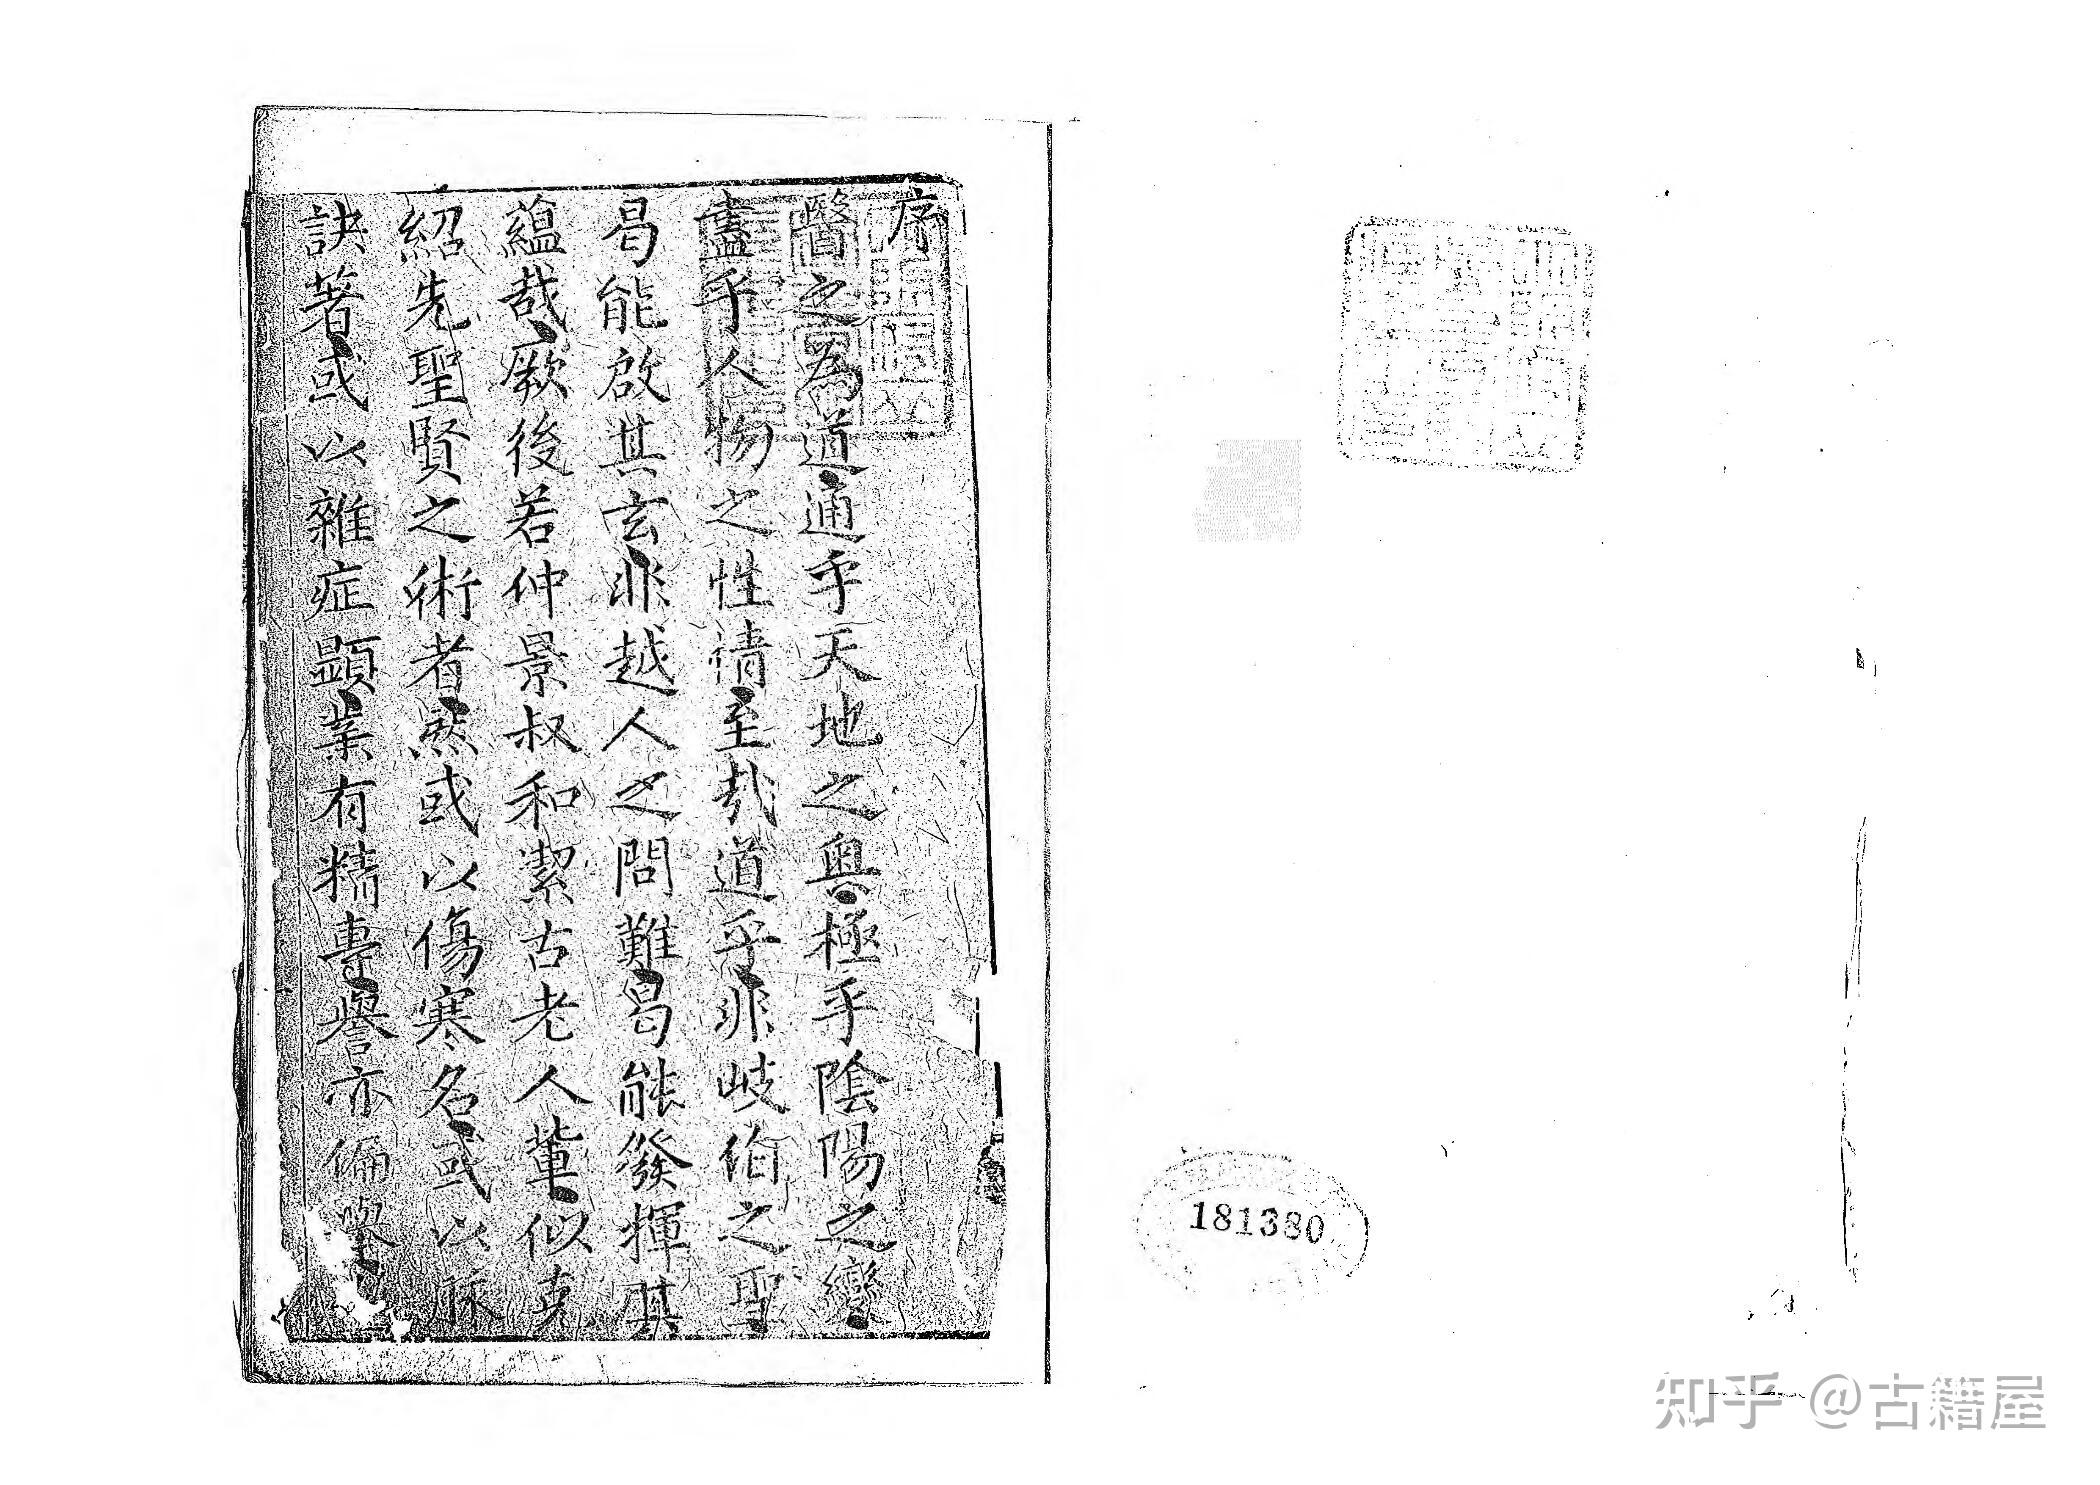 序
醫之為道通乎天地之奧極乎陰陽之變
盡乎人物之性情至哉道乎非岐伯之聖
曷能啟其玄非越人之問難曷能發揮其
蘊哉厥後若仲景叔和潔古老人輩似克
紹先聖賢之術者然或以傷寒名或以脉
訣著或以雜症顯業有精專譽亦偏
181380
知乎 @古籍屋